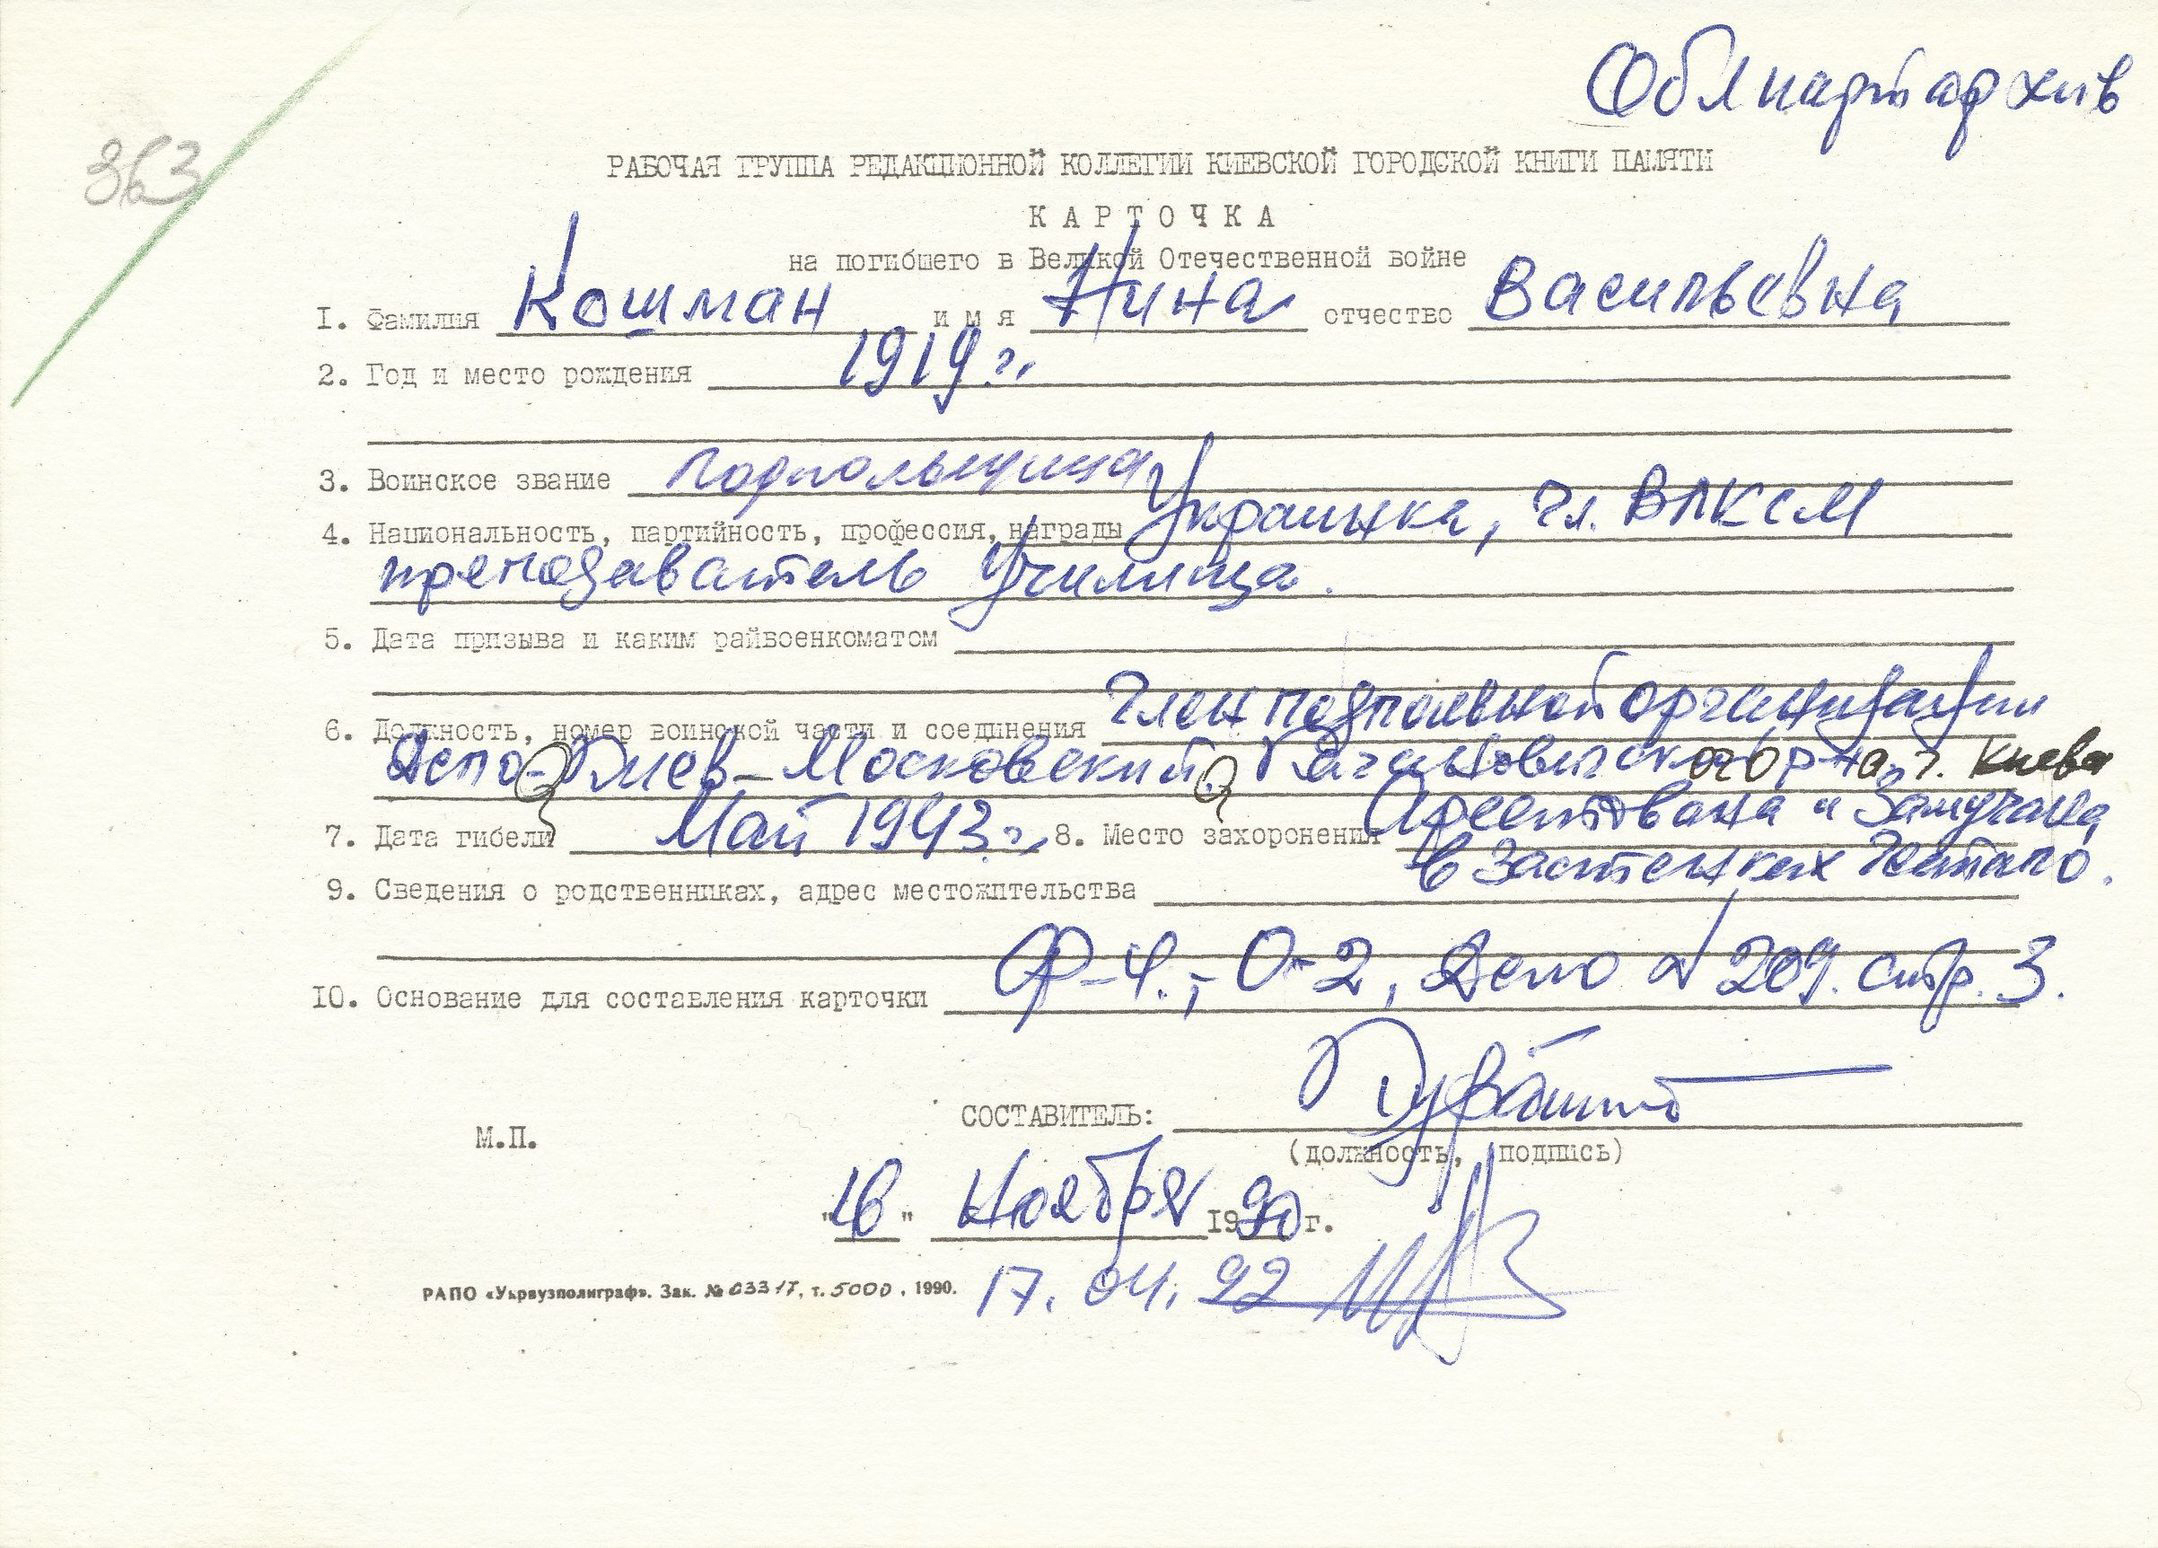 Облпартархив
363
РАБОЧАЯ ГРУППА РЕДАКЦИОННОЙ КОЛЛЕГИИ КИЕВСКОЙ ГОРОДСКОЙ КНИГИ ПАМЯТИ
КАРТОЧКА
на погибшего в Великой Отечественной войне
1. Фамилия Кошман имя Нина отчество Васильевна
2. Год и место рождения 1919 г.
3. Воинское звание подпольщица
4. Национальность, партийность, профессия, награды Украинка, чл. ВЛКСМ
преподаватель училища.
5. Дата призыва и каким райвоенкоматом
6. Должность, номер воинской части и соединения Член подпольной организации
Депо-Киев-Московский Кагановического р-на г. Киева
7. Дата гибели Май 1943 г. 8. Место захоронения Арестована и замучена
в застенках Гестапо.
9. Сведения о родственниках, адрес местожительства
10. Основание для составления карточки Ф-4.,-О-2, Дело № 209. стр. 3.
СОСТАВИТЕЛЬ:
М.П.
(должность, подпись)
"16" Ноября 1990 г.
РАПО «Укрвузполиграф». Зак. № 03317, т. 5000. 1990.
17.04.92